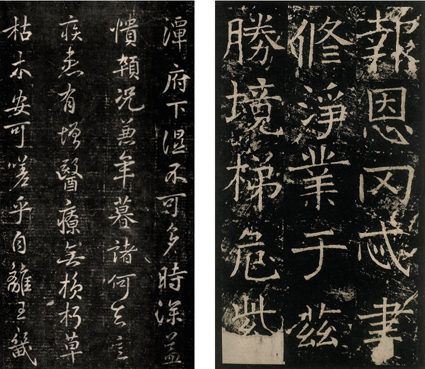 潭府下濕不可多時深益
憒頓況兼年暮諸何足言
疾恙有增醫療無損朽草
枯木安可嗟乎自離王畿
報恩罔忒聿
修淨業于茲
勝境梯危